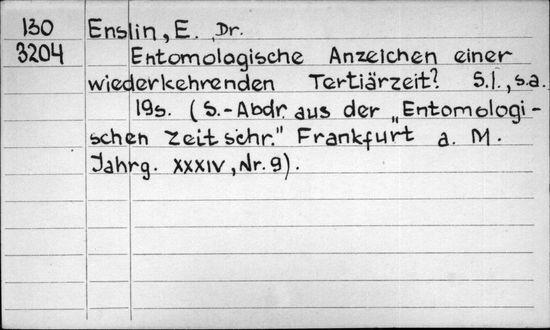 130 Enslin, E. Dr.
3204 Entomologische Anzeichen einer
wiederkehrenden Tertiärzeit? S.l., s.a.
19s. (S.-Abdr. aus der „Entomologi-
schen Zeitschr." Frankfurt a. M.
Jahrg. XXXIV, Nr. 9).